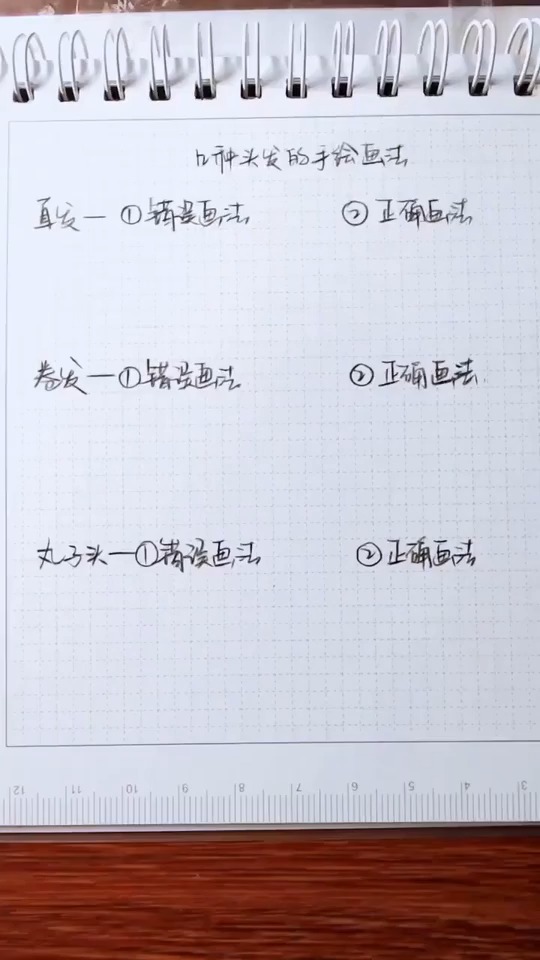 种头发的手绘画法
直发一 ①错误画法 ② 正确画法
卷发一①错误画法 ② 正确画法
丸子头一①错误画法 ② 正确画法
12 11 10 9 8 7 6 5 4 3